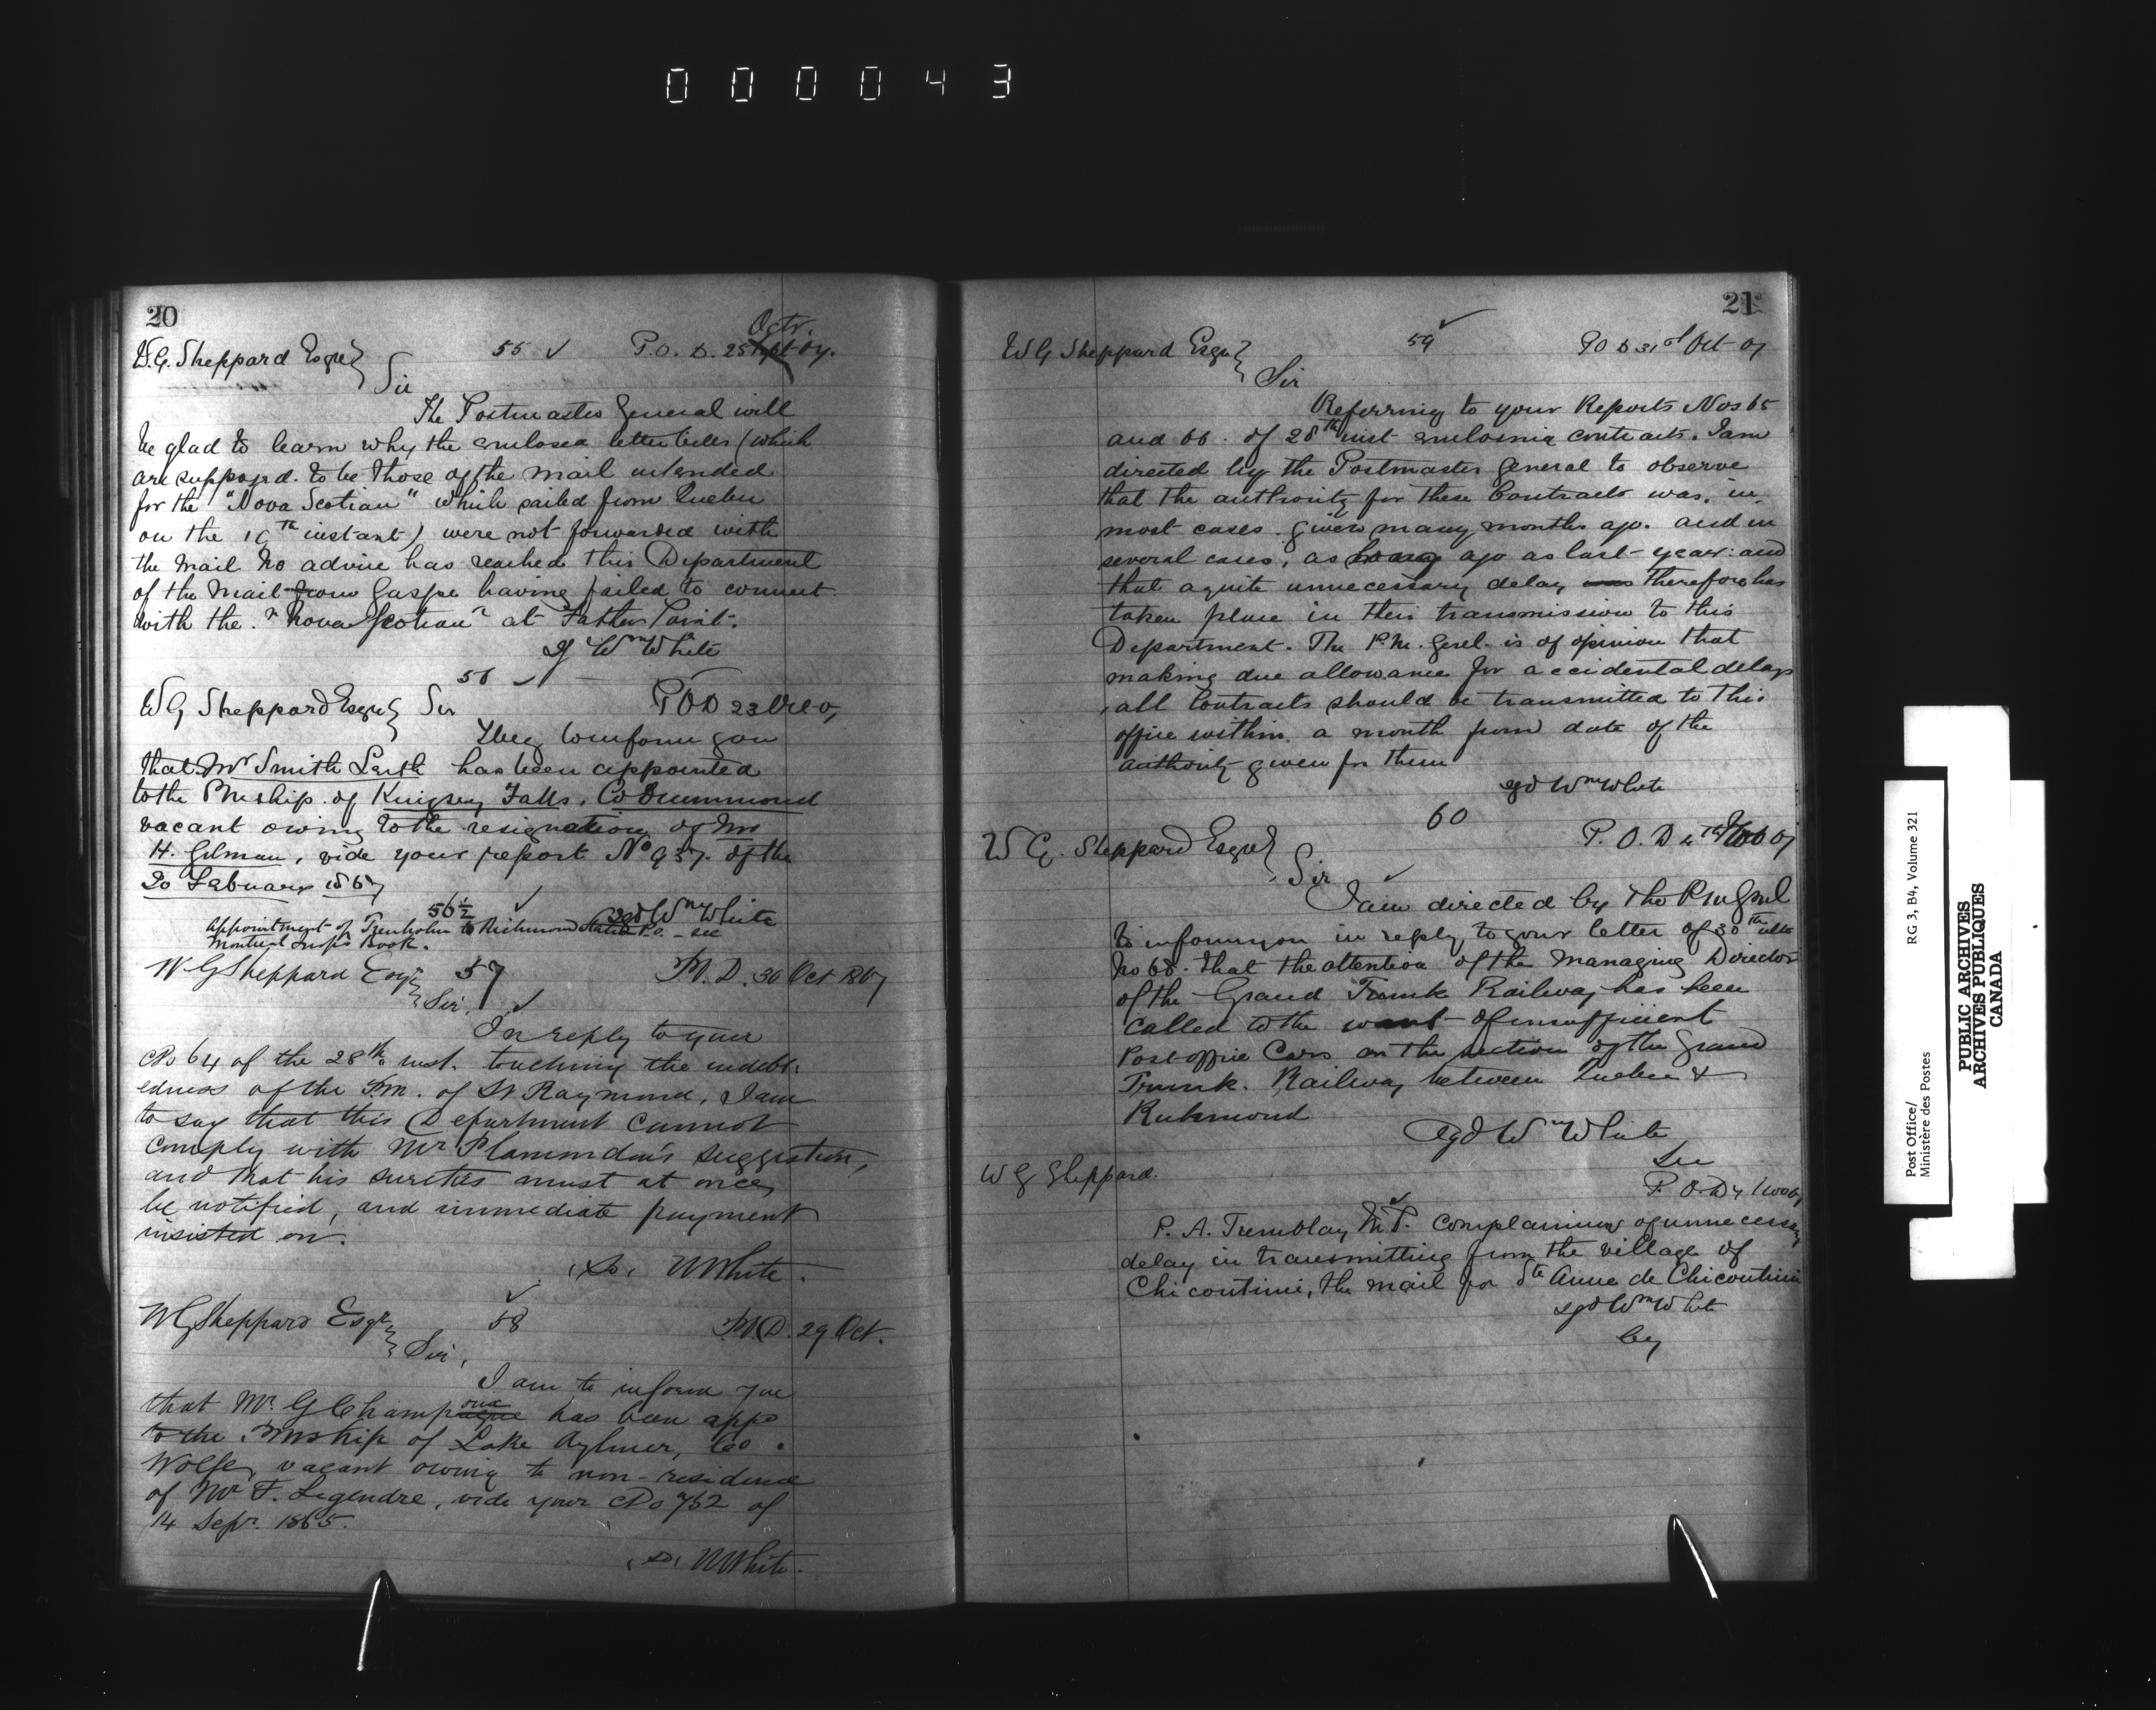 000043
20
W.G. Sheppard Esqre 55 ✓ P.O.D. 25 Sept Octr. 67.
Sir
The Postmaster General will
be glad to learn why the enclosed letter bills (which
are supposed to be those of the mail intended
for the "Nova Scotian" which sailed from Quebec
on the 19th instant) were not forwarded with
the mail No advice has reached this Department
of the mail from Gaspe having failed to connect
with the "Nova Scotian" at Father Point.
Wm White
56 ✓
W G Sheppard Esqre Sir POD 23 Oct
I beg to inform you
that Mr Smith Leith has been appointed
to the Pmship. of Kingsey Falls, Co Drummond
vacant owing to the resignation of Mr
H. Gilman, vide your report No 937. of the
20 February 1867
sgd Wm White
56½ ✓
Appointment of Trenholm to Richmond Station P.O. - see
Montreal Insp's Book.
W G Sheppard Esqr 57 P.O.D. 30 Oct 1867
Sir, ✓
In reply to your
No 64 of the 28th inst. touching the indebt-
edness of the P.M. of St Raymond, I am
to say that this Department cannot
comply with Mr Plamondon's suggestion,
and that his sureties must at once
be notified, and immediate payment
insisted on.
(Sd) W White.
W G Sheppard Esqr 58 ✓ P.O.D. 29 Oct.
Sir,
I am to inform you
that Mr. G Champagne oux has been appd
to the Pmship of Lake Aylmer, Co.
Wolfe, vacant owing to non-residence
of Mr F. Legendre, vide your No 752 of
14 Sepr. 1865.
(Sd) W White.
21
W G Sheppard Esqre 59 ✓ POD 31st Oct 67
Sir
Referring to your Reports Nos 65
and 66. of 28th inst enclosing contracts. I am
directed by the Postmaster General to observe
that the authority for these Contracts was, in
most cases given many months ago. and in
several cases, as long ago as last year: and
that a quite unnecessary delay was therefore has
taken place in their transmission to this
Department. The P.M. Genl. is of opinion that
making due allowance for accidental delays
all Contracts should be transmitted to this
office within a month from date of the
authority given for them
sgd Wm White
60
W G. Sheppard Esqre P. O. D 4th Nov 67
Sir ✓
I am directed by the P M Genl
to inform you in reply to your letter of 30th ulto
No 68. that the attention of the Managing Director
of the Grand Trunk Railway has been
called to the want of insufficient
Post office Cars on the section of the Grand
Trunk. Railway between Quebec &
Richmond
sgd Wm White
Sec
W G Sheppard. P. O. D 4 Nov 67
P. A. Tremblay M.P. complaining of unnecessary
delay in transmitting from the village of
Chicoutimi, the mail for Ste Anne de Chicoutimi
sgd Wm White
Post Office/
Ministère des Postes
RG 3, B4, Volume 321
PUBLIC ARCHIVES
ARCHIVES PUBLIQUES
CANADA